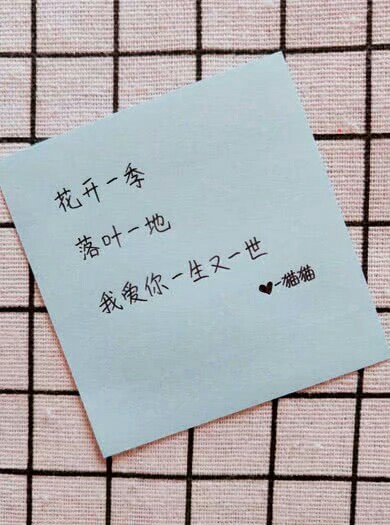 花开一季
落叶一地
我爱你一生又一世
♥-猫猫